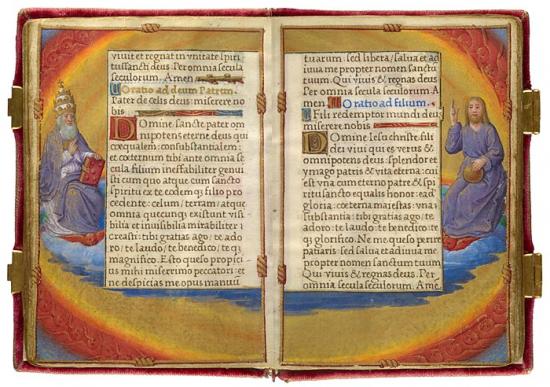 vivit et regnat in unitate spiri
tussancti deus. Per omnia secula
seculorum. Amen
Oratio ad deum Patrem.
Pater de celis deus: miserere no
bis
Domine sancte pater om
nipotens eterne deus qui
coequalem: consubstantialem:
et coeternum tibi ante omnia se
cula filium ineffabiliter genui
sti cum quo atque cum sancto
spiritu ex te eodemq; filio pro
cedente: celum, terram, atque
omnia quecunq; existunt visi
bilia et invisibilia mirabiliter
creasti: tibi gratias ago, te ado
ro, te laudo, te benedico, te q;
magnifico. Esto queso propici
us mihi miserrimo peccatori: et
ne despicias me opus manuū
tuarum: sed libera, salva et ad
iuva me propter nomen sanctū
tuum. Qui vivis & regnas deus
Per omnia secula seculorum. A
men. Oratio ad filium.
Fili redemptor mundi deus
miserere nobis
Domine Iesu christe fili
dei vivi qui es verus &
omnipotens deus: splendor et
ymago patris & vita eterna: cui
est una cum eterno patre & spi
ritu sancto equalis honor: ead
gloria: coeterna maiestas: una
substantia: tibi gratias ago, te
adoro te laudo, te benedico, te
q; glorifico. Ne me queso perire
patiaris sed salva et adiuva me
propter nomen sanctum tuum
Qui vivis & regnas deus. Per
omnia secula seculorum. Amē